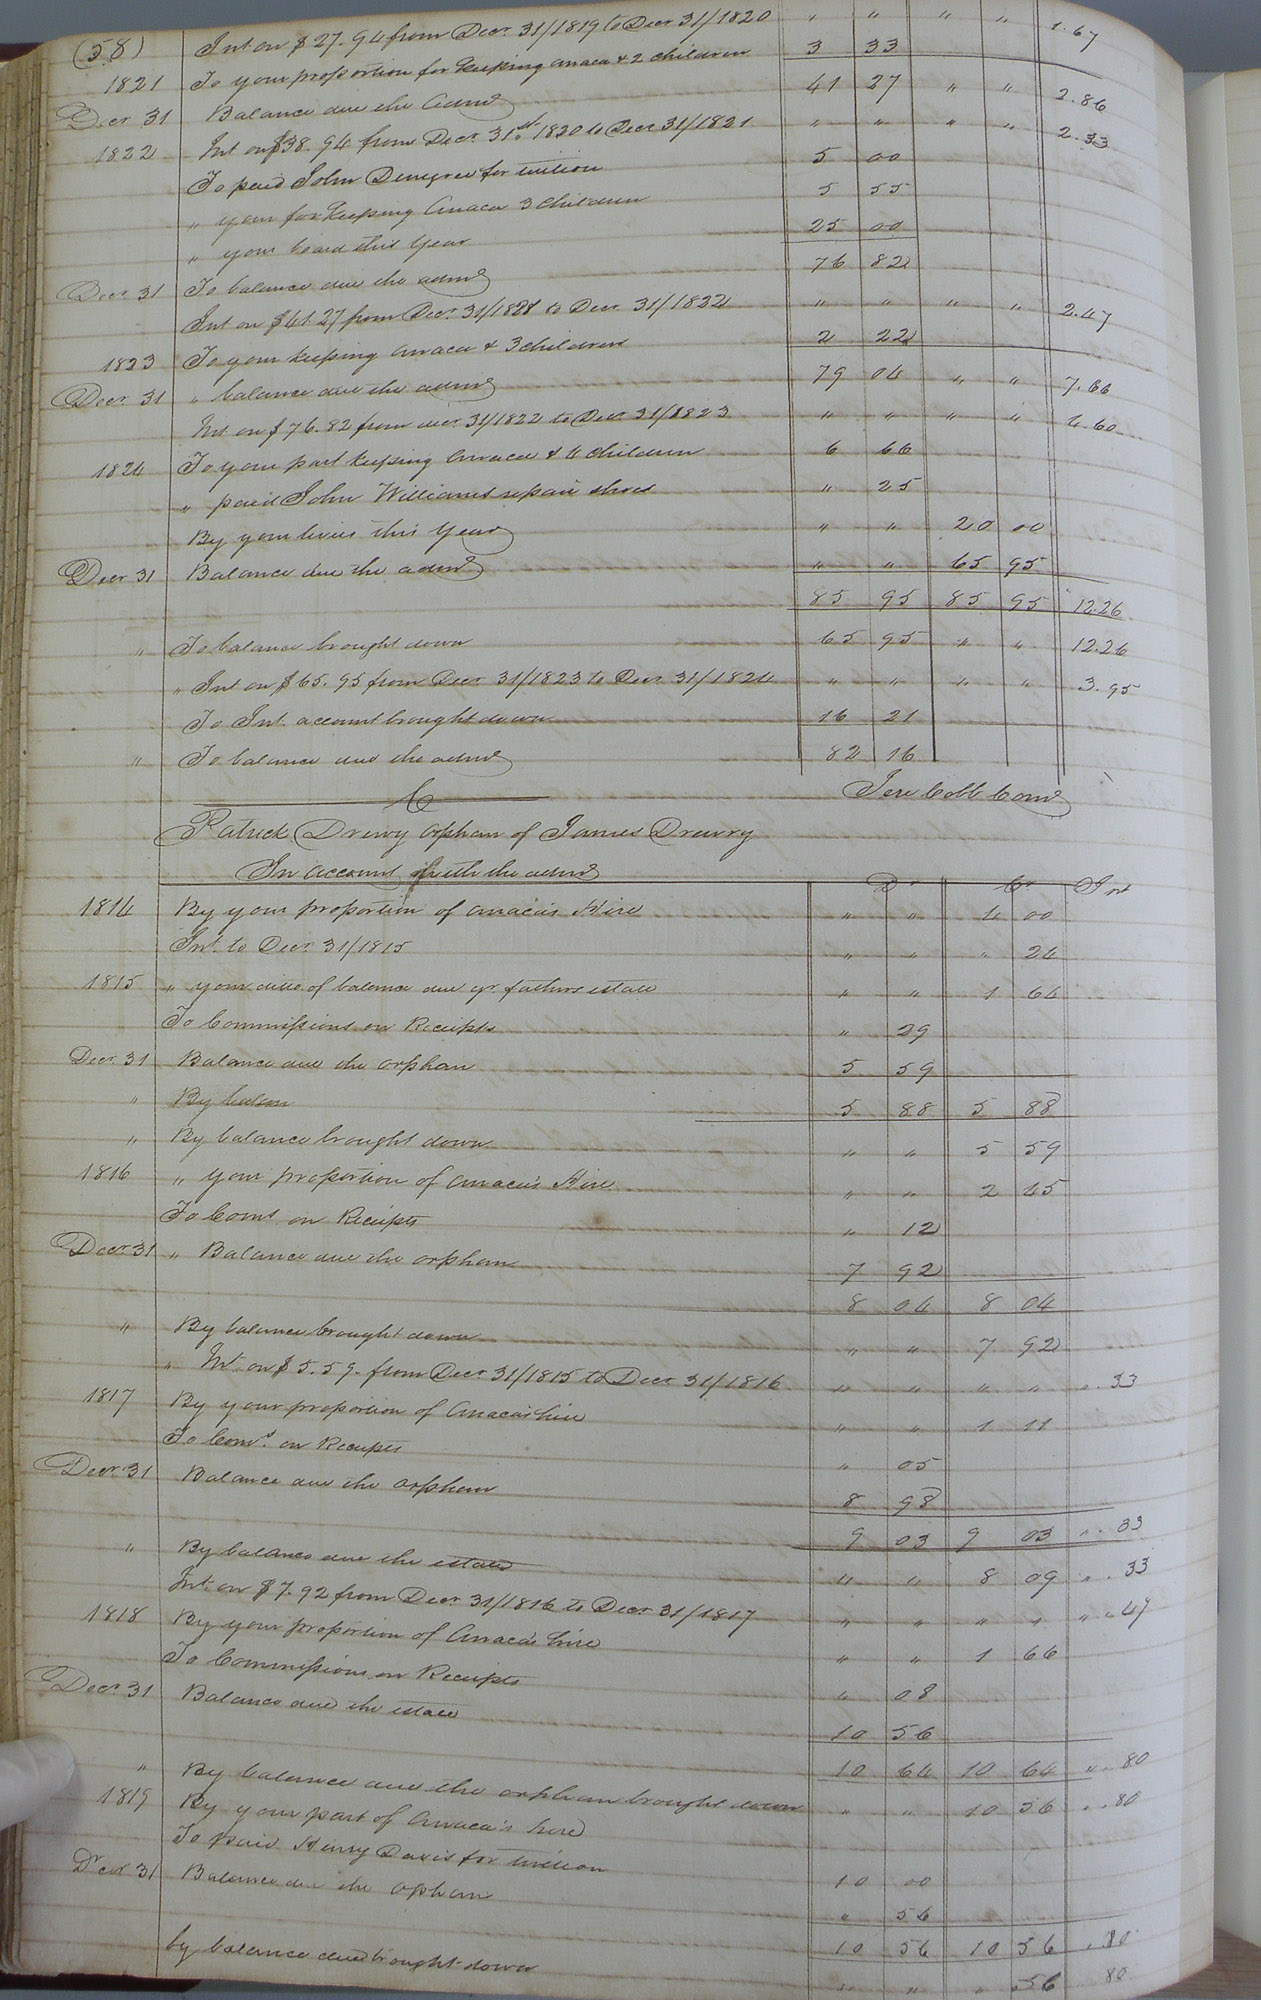 (58) Int on $27.94 from Decr 31/1819 to Decr 31/1820 " " " " 1.67
1821 To your proportion for keeping Anaca & 2 children 3 33
Decr 31 Balance due the admr 41 27 " " 2.86
1822 Int on $38.94 from Decr 31st 1820 to Decr 31/1821 " " " " 2.33
To paid John Denegree for tuition 5 00
" your for keeping Anaca 3 children 5 55
" your board this Year 25 00
Decr 31 To balance due the admr 76 82
Int on $41.27 from Decr 31/1821 to Decr 31/1822 " " " " 2.47
1823 To your keeping Anaca & 3 children 2 22
Decr 31 " balance due the admr 79 04 " " 7.66
Int on $76.82 from decr 31/1822 to Decr 31/1823 " " " " 4.60
1824 To your part keeping Anaca & 4 children 6 66
" paid John Williams repair shoes " 25
By your hires this Year " " 20 00
Decr 31 Balance due the admr " " 65 95
85 95 85 95 12.26
" To balance brought down 65 95 " " 12.26
" Int on $65.95 from Decr 31/1823 to Decr 31/1824 " " " " 3.95
To Int. account brought down 16 21
" To balance due the admr 82 16
Jere Cobb Comr
Patrick Drewy orphan of James Drewry
In account with the admr
Dr Cr Int
1814 By your proportion of Anaca's Hire " " 4 00
Int. to Decr 31/1815 " " " 24
1815 " your divo of balance due yr. fathers estate " " 1 64
To Commissions on Receipts " 29
Decr 31 Balance due the orphan 5 59
" By balan 5 88 5 88
" By balance brought down " " 5 59
1816 " your proportion of Anaca's Hire " " 2 45
To Coms on Receipts " 12
Decr 31 " Balance due the orphan 7 92
8 04 8 04
" By balance brought down " " 7 92
" Int. on $5.59. from Decr 31/1815 to Decr 31/1816 " " " " ".33
1817 By your proportion of Anaca's hire " " 1 11
To Coms. on Receipts " 05
Decr 31 Balance due the orphan 8 98
9 03 9 03 ".33
" By balance due the estate " " 8 09 ".33
Int. on $7.92 from Decr 31/1816 to Decr 31/1817 " " " " ".47
1818 By your proportion of Anaca's hire " " 1 66
To Commissions on Receipts " 08
Decr 31 Balance due the estate 10 56
10 64 10 64 ".80
" By balance due the orphan brought down " " 10 56 ".80
1819 By your part of Anaca's hire
To paid Henry Davis for tuition 10 00
Decr 31 Balance due the orphan " 56
10 56 10 56 ".80
by balance due brought down " " " 56 80